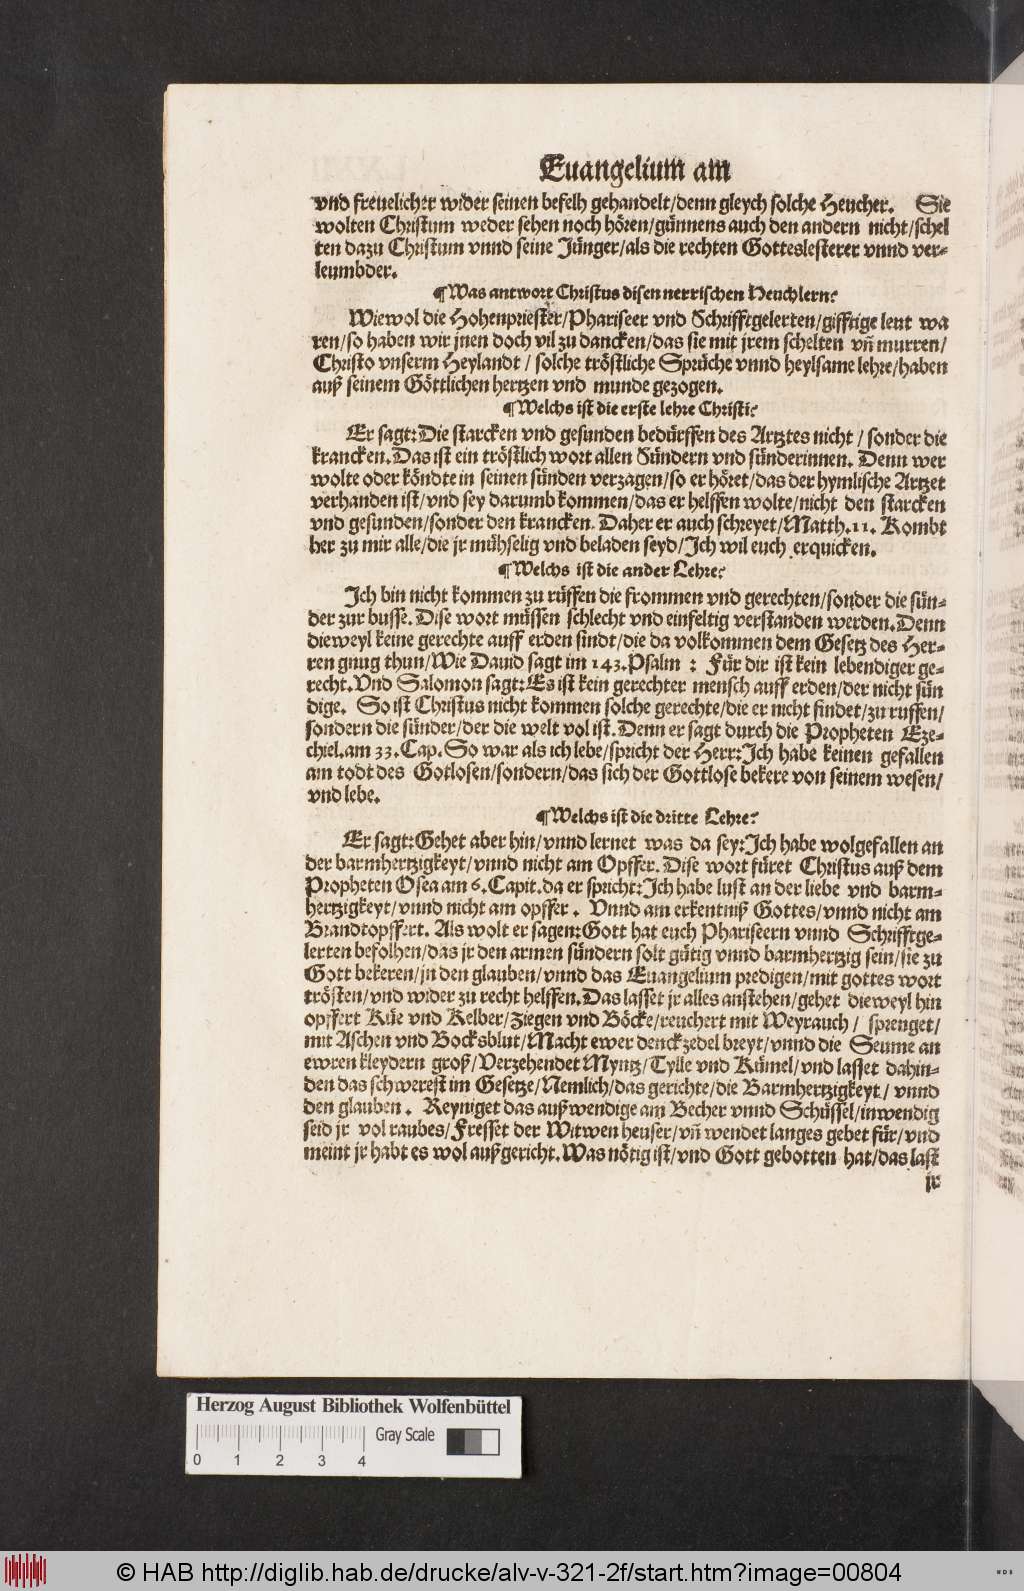 Euangelium am
vnd freuelicher wider seinen befelh gehandelt/denn gleych solche Heucher. Sie
wolten Christum weder sehen noch hören/günnens auch den andern nicht/schel
ten dazu Christum vnnd seine Jünger/als die rechten Gotteslesterer vnnd ver-
leumbder.
¶Was antwort Christus disen nerrischen Heuchlern?
Wiewol die Hohenpriester/Phariseer vnd Schrifftgelerten/gifftige leut wa
ren/so haben wir jnen doch vil zu dancken/das sie mit jrem schelten vn̄ murren/
Christo vnserm Heylandt/ solche tröstliche Sprüche vnnd heylsame lehre/haben
auß seinem Göttlichen hertzen vnd munde gezogen.
¶Welchs ist die erste lehre Christi?
Er sagt:Die starcken vnd gesunden bedürffen des Artztes nicht/ sonder die
krancken.Das ist ein tröstlich wort allen Sündern vnd sünderinnen. Denn wer
wolte oder köndte in seinen sünden verzagen/so er höret/das der hymlische Artzet
verhanden ist/vnd sey darumb kommen/das er helffen wolte/nicht den starcken
vnd gesunden/sonder den krancken. Daher er auch schreyet/Matth.11. Kombt
her zu mir alle/die jr mühselig vnd beladen seyd/Ich wil euch erquicken.
¶Welchs ist die ander Lehre?
Ich bin nicht kommen zu rüffen die frommen vnd gerechten/sonder die sün-
der zur busse. Dise wort müssen schlecht vnd einfeltig verstanden werden.Denn
dieweyl keine gerechte auff erden sindt/die da volkommen dem Gesetz des Her-
ren gnug thun/Wie Dauid sagt im 143.Psalm : Für dir ist kein lebendiger ge-
recht.Vnd Salomon sagt:Es ist kein gerechter mensch auff erden/der nicht sün
dige. So ist Christus nicht kommen solche gerechte/die er nicht findet/zu ruffen/
sondern die sünder/der die welt vol ist.Denn er sagt durch die Propheten Eze-
chiel.am 33.Cap.So war als ich lebe/spricht der Herr:Ich habe keinen gefallen
am todt des Gotlosen/sondern/das sich der Gottlose bekere von seinem wesen/
vnd lebe.
¶Welchs ist die dritte Lehre?
Er sagt:Gehet aber hin/vnnd lernet was da sey:Ich habe wolgefallen an
der barmhertzigkeyt/vnnd nicht am Opffer. Dise wort füret Christus auß dem
Propheten Osea am 6.Capit.da er spricht:Ich habe lust an der liebe vnd barm-
hertzigkeyt/vnnd nicht am opffer. Vnnd am erkentniß Gottes/vnnd nicht am
Brandtopffert. Als wolt er sagen:Gott hat euch Phariseern vnnd Schrifftge-
lerten befolhen/das jr den armen sündern solt gütig vnnd barmhertzig sein/sie zu
Gott bekeren/jn den glauben/vnnd das Euangelium predigen/mit gottes wort
trösten/vnd wider zu recht helffen.Das lasset jr alles anstehen/gehet dieweyl hin
opffert Küe vnd Kelber/Ziegen vnd Böcke/reuchert mit Weyrauch/ sprenget/
mit Aschen vnd Bocksblut/Macht ewer denckzedel breyt/vnnd die Seume an
ewren kleydern groß/Verzehendet Myntz/Tylle vnd Kümel/vnd lasset dahin-
den das schwerest im Gesetze/Nemlich/das gerichte/die Barmhertzigkeyt/ vnnd
den glauben. Reyniget das außwendige am Becher vnnd Schüssel/inwendig
seid jr vol raubes/Fresset der Witwen heuser/vn̄ wendet langes gebet für/vnd
meint jr habt es wol außgericht.Was nötig ist/vnd Gott gebotten hat/das last
jr
Herzog August Bibliothek Wolfenbüttel
Gray Scale
0 1 2 3 4
© HAB http://diglib.hab.de/drucke/alv-v-321-2f/start.htm?image=00804